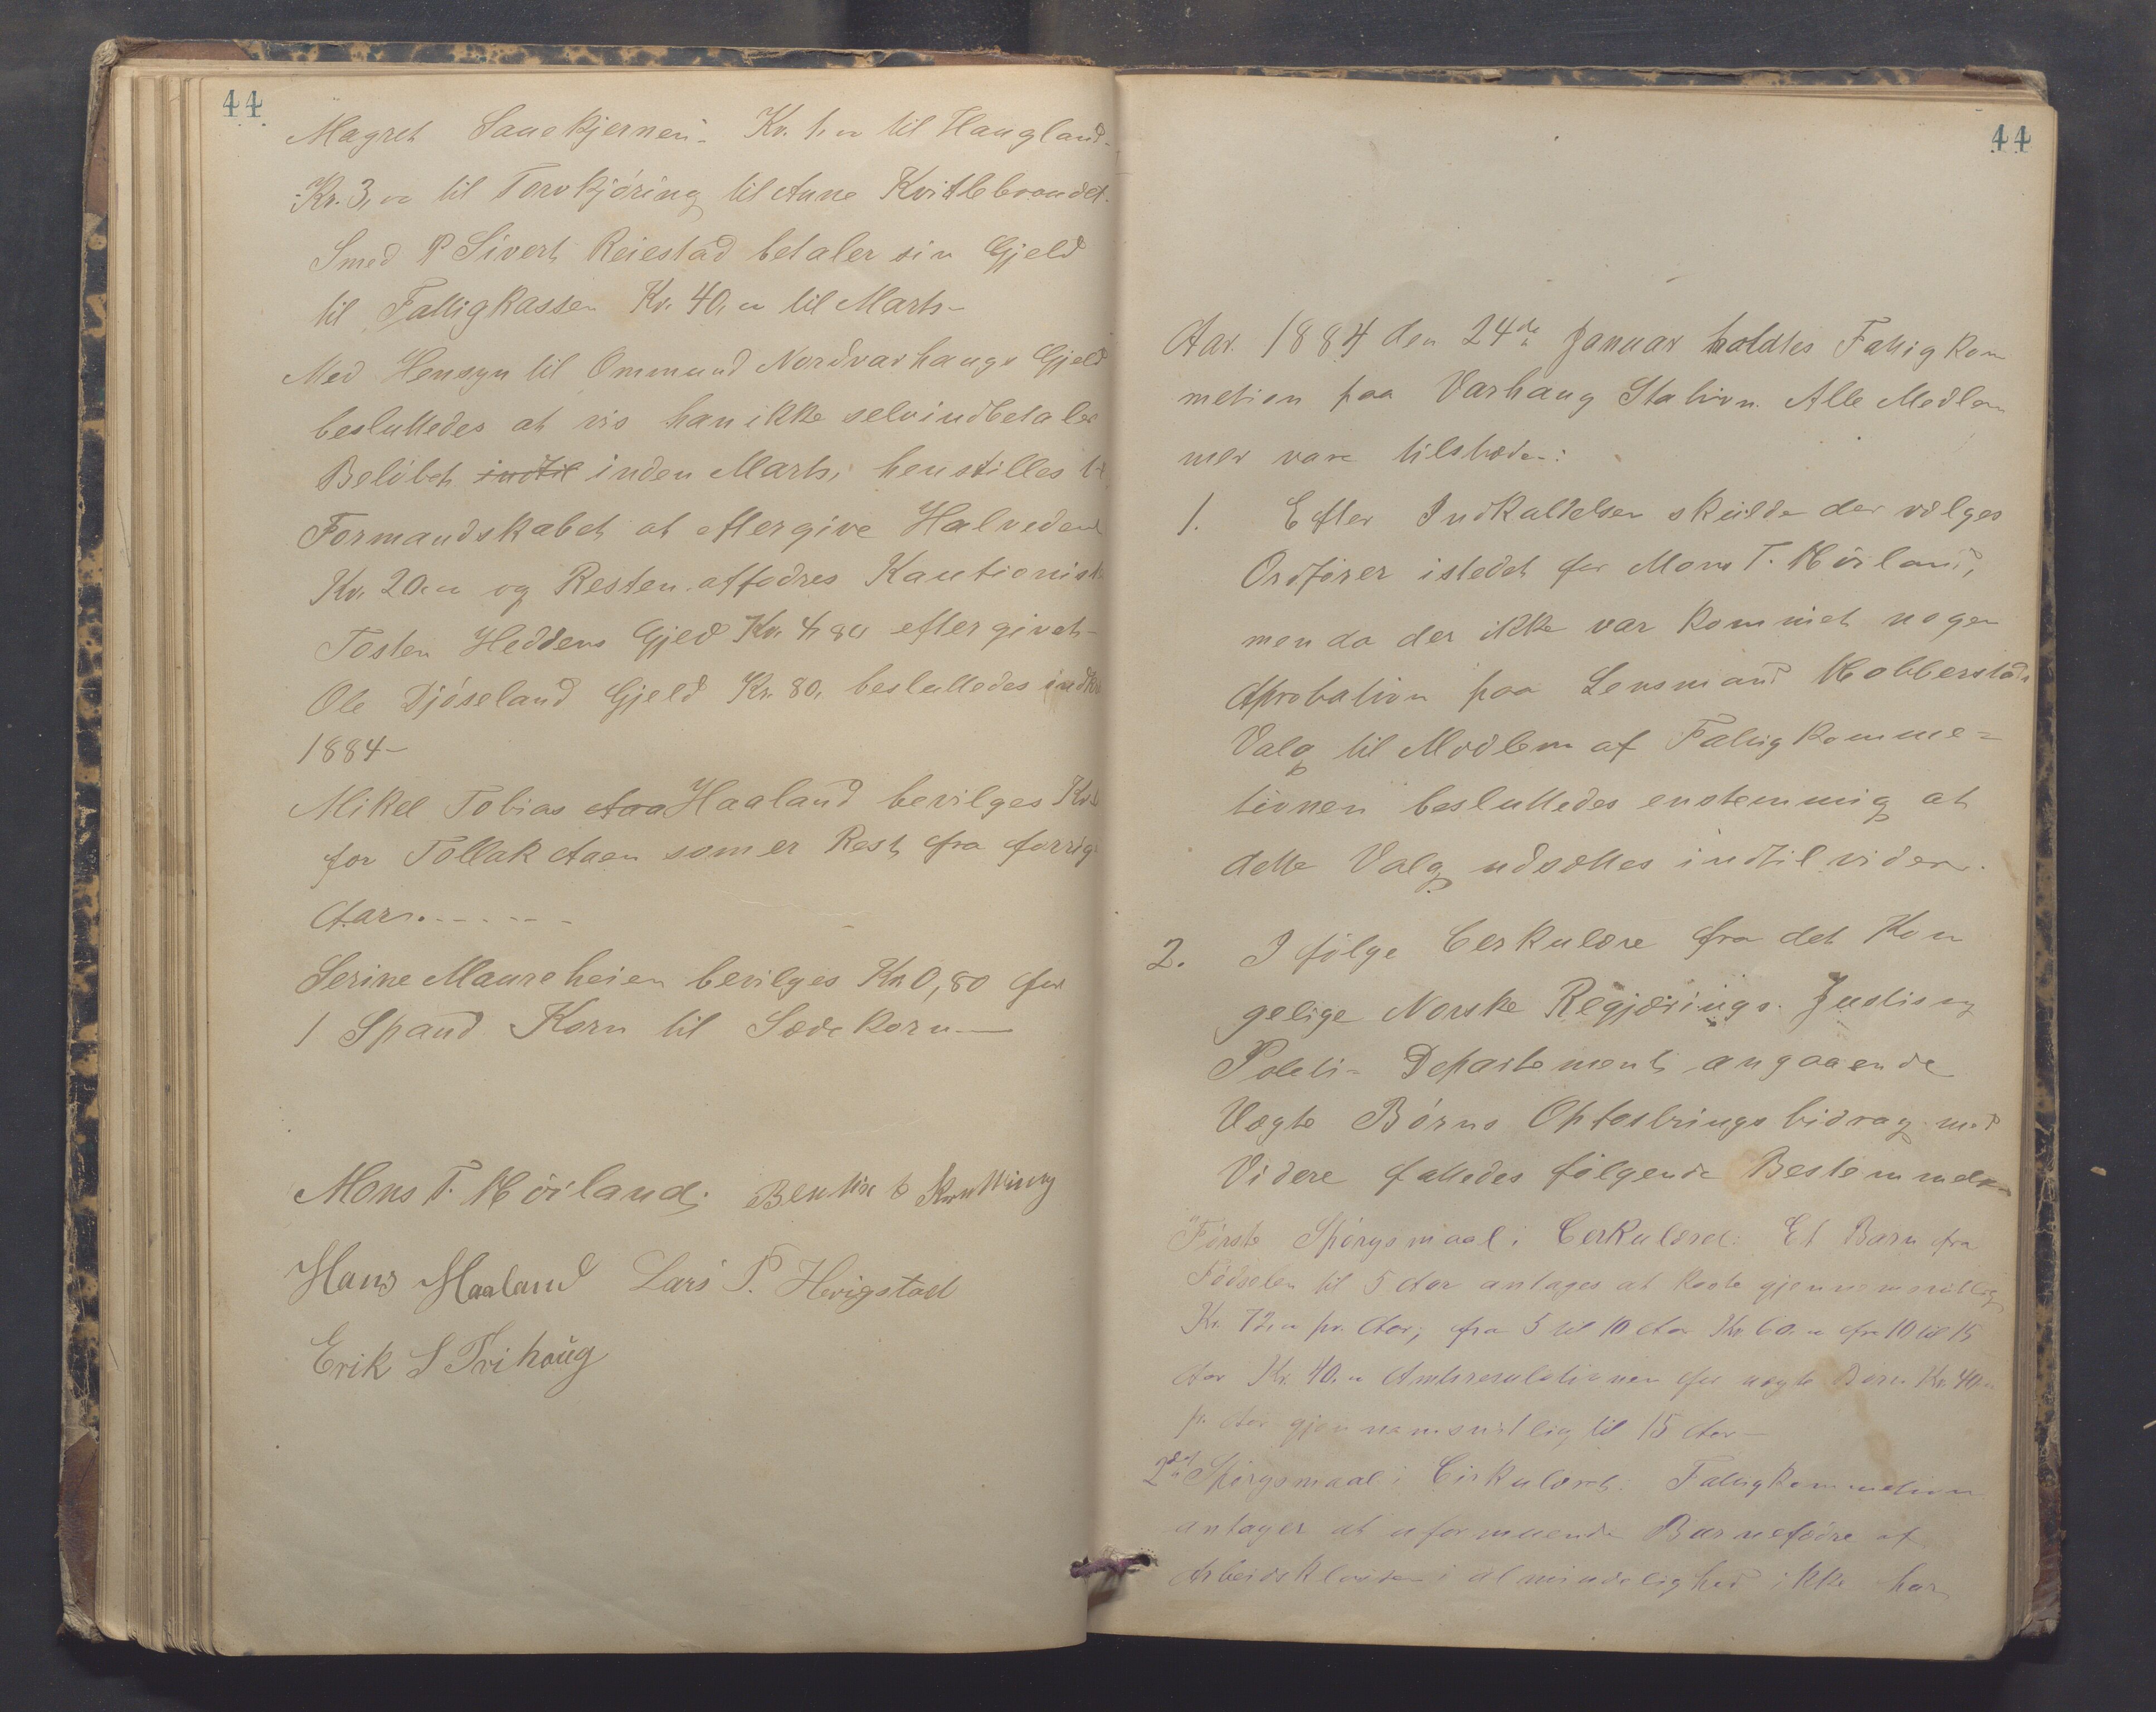 44
Magret Sauekjernen - Kr. 1,00 til Haugland -
Kr. 3,00 til Torvkjöring til Anne Kvitlebrondet.
Smed P Sivert Reiestad betaler sin Gjeld
til Fattigkassen Kr. 40,00 til Marts -
Med Hensyn til Ommund Nordvarhaugs Gjeld
besluttedes at vis han ikke selv indbetaler
Belöbet indtil inden Marts, henstilles t
Formandskabet at eftergive Halvedene
Kr. 20,00 og Resten affodres Kautionist
Tosten Heddens Gjed Kr. 4,80 eftergivet -
Ole Djöseland Gjeld Kr. 80, besluttedes indk
1884 -
Mikel Tobias Aaa Haaland bevilges Kr.
for Tollak Aaen som er Rest fra forrig
Aar.
Serine Maureheien bevilges Kr 0,80 for
1 Spand Korn til Sædekorn —
Mons T. Höiland.
Hans Haaland Lars P. Herigstad
Erik S Tvihaug
44
Aar. 1884 den 24de Januar holdtes Fattigkom
metion paa Varhaug Station. Alle Medlem
mer vare tilstæde:
1. Efter Indkaldelsen skulde der vælges
Ordförer istedet for Mons T. Höiland,
men da der ikke var kommet nogen
Aprobation paa Lensmand Hobberstads
Valg til Medlem af Fattigkomme=
tionen besluttedes enstemmig at
dette Valg udsættes indtil videre.
2. I fölge Cerkulære fra det Kon
gelige Norske Regjærings Justis og
Politi= Departement angaaende
Uægte Börns Opfostrings bidrag med
Videre fattedes fölgende Bestemmelse
"Förste Spörgsmaal i Cerkuleret: Et Barn fra
Födselen til 5 Aar antages at koste gjennemsnitlig
Kr. 72,00 pr. Aar; fra 5 til 10 Aar Kr. 60,00 fra 10 til 15
Aar Kr. 40,00 Amtsresulotionen for uægte Börn Kr. 40,00
pr. Aar gjennemsnitlig til 15 Aar —
2det Spörgsmaal i Cirkuleret. Fattigkommetion
antager at uformuende Barnefædre af
Arbeidsklassen i almindelighed ikke har